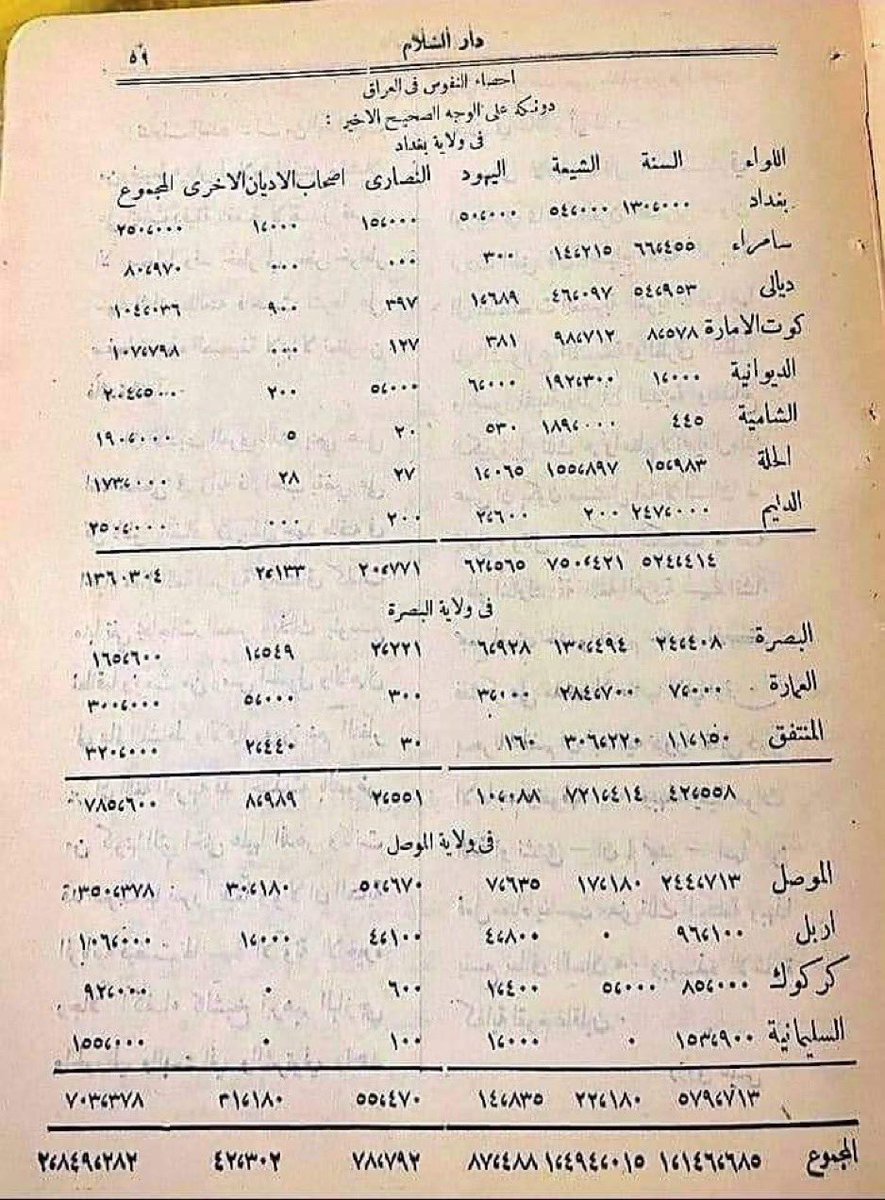 دار السلام ٥٩
احصاء النفوس فى العراق
دونكه على الوجه الصحيح الاخير :
فى ولاية بغداد
اللواء السنة الشيعة اليهود النصارى اصحاب الاديان الاخرى المجموع
بغداد ١٣٠،٠٠٠ ٥٤،٠٠٠ ٥٠،٠٠٠ ١٥،٠٠٠ ١،٠٠٠ ٢٥٠،٠٠٠
سامراء ٦٦،٤٥٥ ١٤،٢١٥ ٣٠٠ ٠٠٠ ٠٠٠ ٨٠،٩٧٠
ديالى ٥٤،٩٥٣ ٤٦،٠٩٧ ١،٦٨٩ ٣٩٧ ٩٠٠ ١٠٤،٠٣٦
كوت الامارة ٨،٥٧٨ ٩٨،٧١٢ ٣٨١ ١٢٧ ٠٠٠ ١٠٧،٧٩٨
الديوانية ١،٠٠٠ ١٩٢،٣٠٠ ٦،٠٠٠ ٥،٠٠٠ ٢٠٠ ٢٠٤،٥٠٠
الشامية ٤٤٥ ١٨٩،٠٠٠ ٥٣٠ ٢٠ ٥ ١٩٠،٠٠٠
الحلة ١٥،٩٨٣ ١٥٥،٨٩٧ ١،٠٦٥ ٢٧ ٢٨ ١٧٣،٠٠٠
الدليم ٢٤٧،٠٠٠ ٢٠٠ ٢،٦٠٠ ٢٠٠ ٠٠٠ ٢٥٠،٠٠٠
٥٢٤،٤١٤ ٧٥٠،٤٢١ ٦٢،٥٦٥ ٢٠،٧٧١ ٢،١٣٣ ١٣٦٠،٣٠٤
فى ولاية البصرة
البصرة ٢٤،٤٠٨ ١٣٠،٤٩٤ ٦،٩٢٨ ٢،٢٢١ ١،٥٤٩ ١٦٥،٦٠٠
العمارة ٧،٠٠٠ ٢٨٤،٧٠٠ ٣،٠٠٠ ٣٠٠ ٥،٠٠٠ ٣٠٠،٠٠٠
المنتفق ١١،١٥٠ ٣٠٦،٢٢٠ ١٦٠ ٣٠ ٢،٤٤٠ ٣٢٠،٠٠٠
٤٢،٥٥٨ ٧٢١،٤١٤ ١٠،٠٨٨ ٢،٥٥١ ٨،٩٨٩ ٧٨٥،٦٠٠
فى ولاية الموصل
الموصل ٢٤٤،٧١٣ ١٧،١٨٠ ٧،٦٣٥ ٥٠،٦٧٠ ٣٠،١٨٠ ٣٥٠،٣٧٨
اربل ٩٦،١٠٠ ٠ ٤،٨٠٠ ٤،١٠٠ ١،٠٠٠ ١٠٦،٠٠٠
كركوك ٨٥،٠٠٠ ٥،٠٠٠ ١،٤٠٠ ٦٠٠ ٠ ٩٢،٠٠٠
السليمانية ١٥٣،٩٠٠ ٠ ١،٠٠٠ ١٠٠ ٠ ١٥٥،٠٠٠
٥٧٩،٧١٣ ٢٢،١٨٠ ١٤،٨٣٥ ٥٥،٤٧٠ ٣١،١٨٠ ٧٠٣،٣٧٨
المجموع ١،١٤٦،٦٨٥ ١،٤٩٤،٠١٥ ٨٧،٤٨٨ ٧٨،٧٩٢ ٤٢،٣٠٢ ٢،٨٤٩،٢٨٢